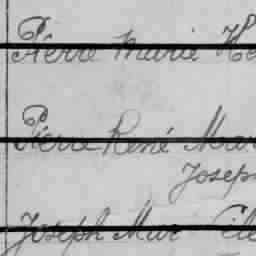 Pierre Marie
Pierre René
Joseph
Joseph Mar